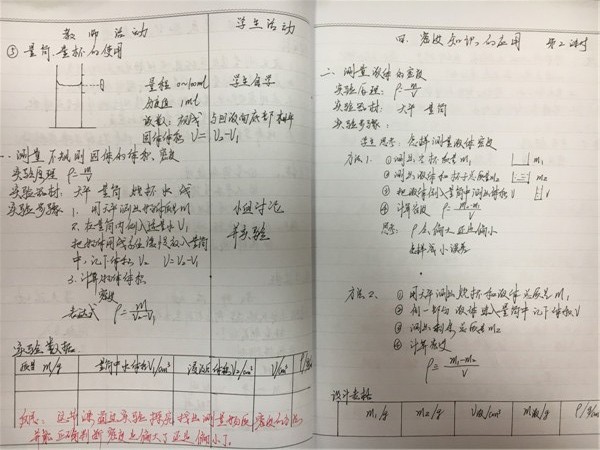 教师活动
学生活动
⑤ 量筒、量杯的使用
量程 0~100ml
学生自学
分度值 1ml
读数：视线与凹液面底部相平
固体体积 V = V₂-V₁
一. 测量不规则固体的体积、密度
实验原理 ρ=m/V
实验器材：天平 量筒 烧杯 水 线
实验步骤 1. 用天平测出物体质量m
2. 在量筒内倒入适量水V₁
把物体用线拴住浸没放入量筒
中，记下体积V₂ V=V₂-V₁
3. 计算物体体积
密度
表达式 ρ=m/V₂-V₁
小组讨论
并实验
实验数据
质量 m/g
量筒中水体积V₁/cm³
V₂/cm³
V/cm³
四. 密度知识的应用 第2课时
二. 测量液体的密度
实验原理：ρ=m/V
实验器材：天平 量筒
实验步骤：
学生思考：怎样测量液体密度
方法1. ① 测出空杯质量m₁
m₁
② 测出液体和杯子总质量m₂
m₂
③ 把液体倒入量筒中测出体积V
V
④ 计算密度 ρ=m₂-m₁/V
思考：ρ会偏大还是偏小
怎样减小误差
方法2. ① 用天平测出烧杯和液体总质量m₁
② 倒一部分液体进入量筒中记下体积V
③ 测出剩余总质量m₂
④ 计算密度
ρ=m₁-m₂/V
设计表格
m₁/g
m₂/g
V液/cm³
m液/g